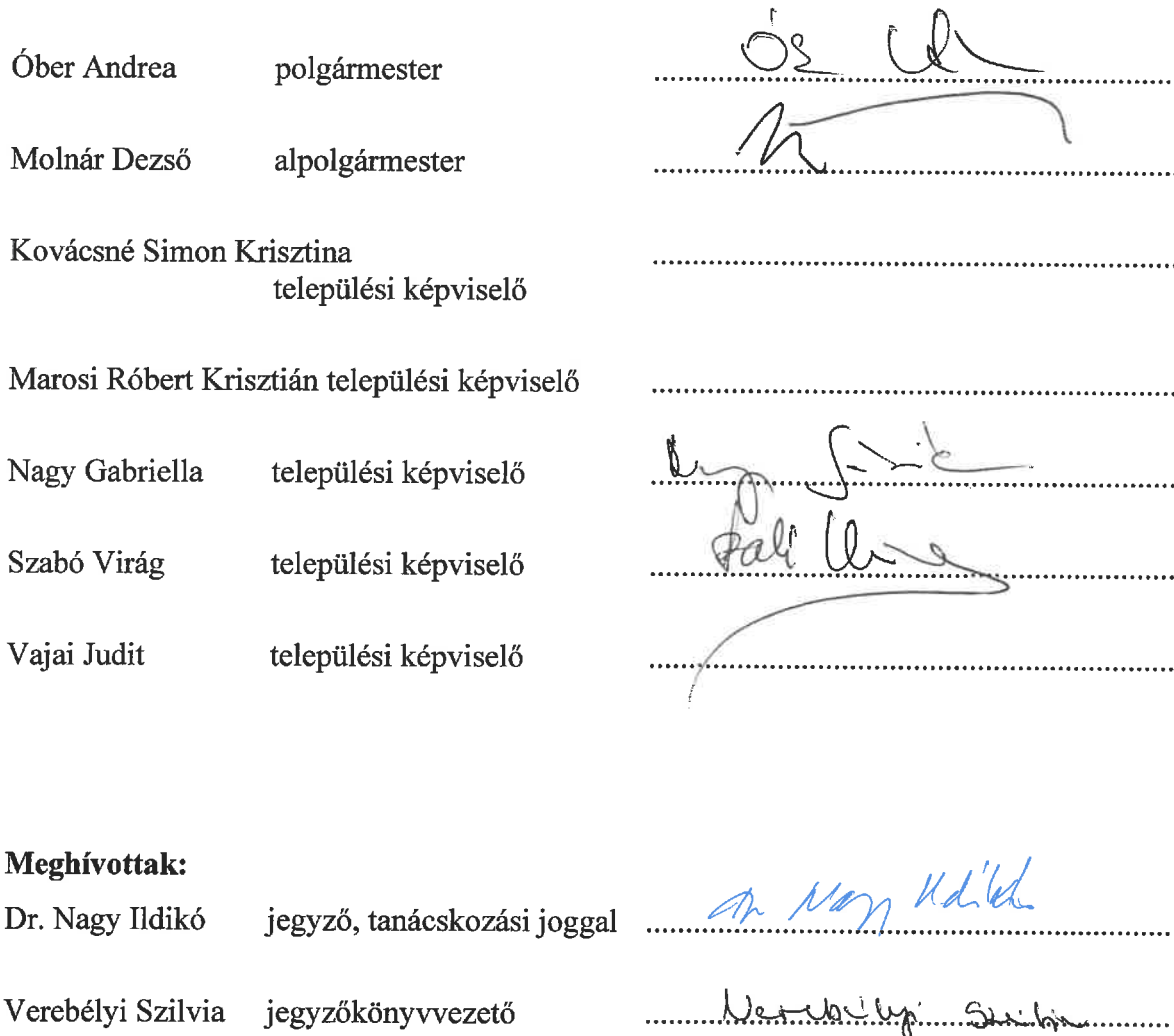 Óber Andrea polgármester
Molnár Dezső alpolgármester
Kovácsné Simon Krisztina
települési képviselő
Marosi Róbert Krisztián települési képviselő
Nagy Gabriella települési képviselő
Szabó Virág települési képviselő
Vajai Judit települési képviselő
Meghívottak:
Dr. Nagy Ildikó jegyző, tanácskozási joggal Dr Nagy Ildikó
Verebélyi Szilvia jegyzőkönyvvezető Verebélyi Szilvia